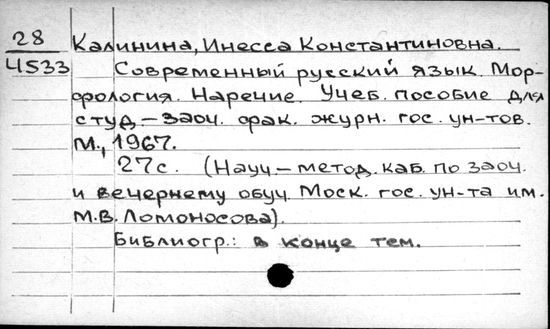 28
4533
Калинина, Инесса Константиновна.
Современный русский язык. Мор-
фология. Наречие. Учеб. пособие для
студ-заоч. фак. журн. гос. ун-тов.
М., 1967.
27с. (Науч-метод. каб. по заоч.
и вечернему обуч. Моск. гос. ун-та им.
М.В. Ломоносова).
Библиогр.: в конце тем.